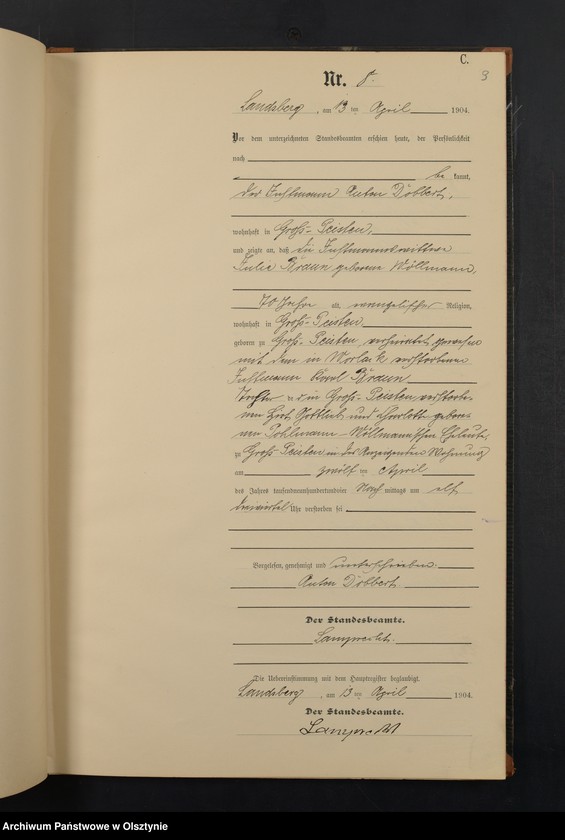 C.
9
Nr. 8.
Landsberg, am 13 ten April 1904.
Vor dem unterzeichneten Standesbeamten erschien heute, der Persönlichkeit
nach
be kannt,
der Instmann Anton Döbbert,
wohnhaft in Groß-Peisten,
und zeigte an, daß die Instmannswittwe
Julie geborene Wöllmann,
70 Jahre alt, evangelischer Religion,
wohnhaft in Groß-Peisten
geboren zu Groß-Peisten, verheirathet gewesen
mit dem in Worlack verstorbenen
Instmann Karl
Tochter der in Groß-Peisten verstorbe-
nen Gottlieb und Charlotte gebore-
nen Pohlmann-Wöllmannschen Eheleute,
zu Groß-Peisten in des Anzeigenden Wohnung
am zwölf ten April
des Jahres tausendneunhundertundvier Nach mittags um elf
dreiviertel Uhr verstorben sei
Vorgelesen, genehmigt und unterschrieben.
Anton Döbbert.
Der Standesbeamte.
Lamprecht.
Die Uebereinstimmung mit dem Hauptregister beglaubigt.
Landsberg, am 13 ten April 1904.
Der Standesbeamte.
Lamprecht
Archiwum Państwowe w Olsztynie